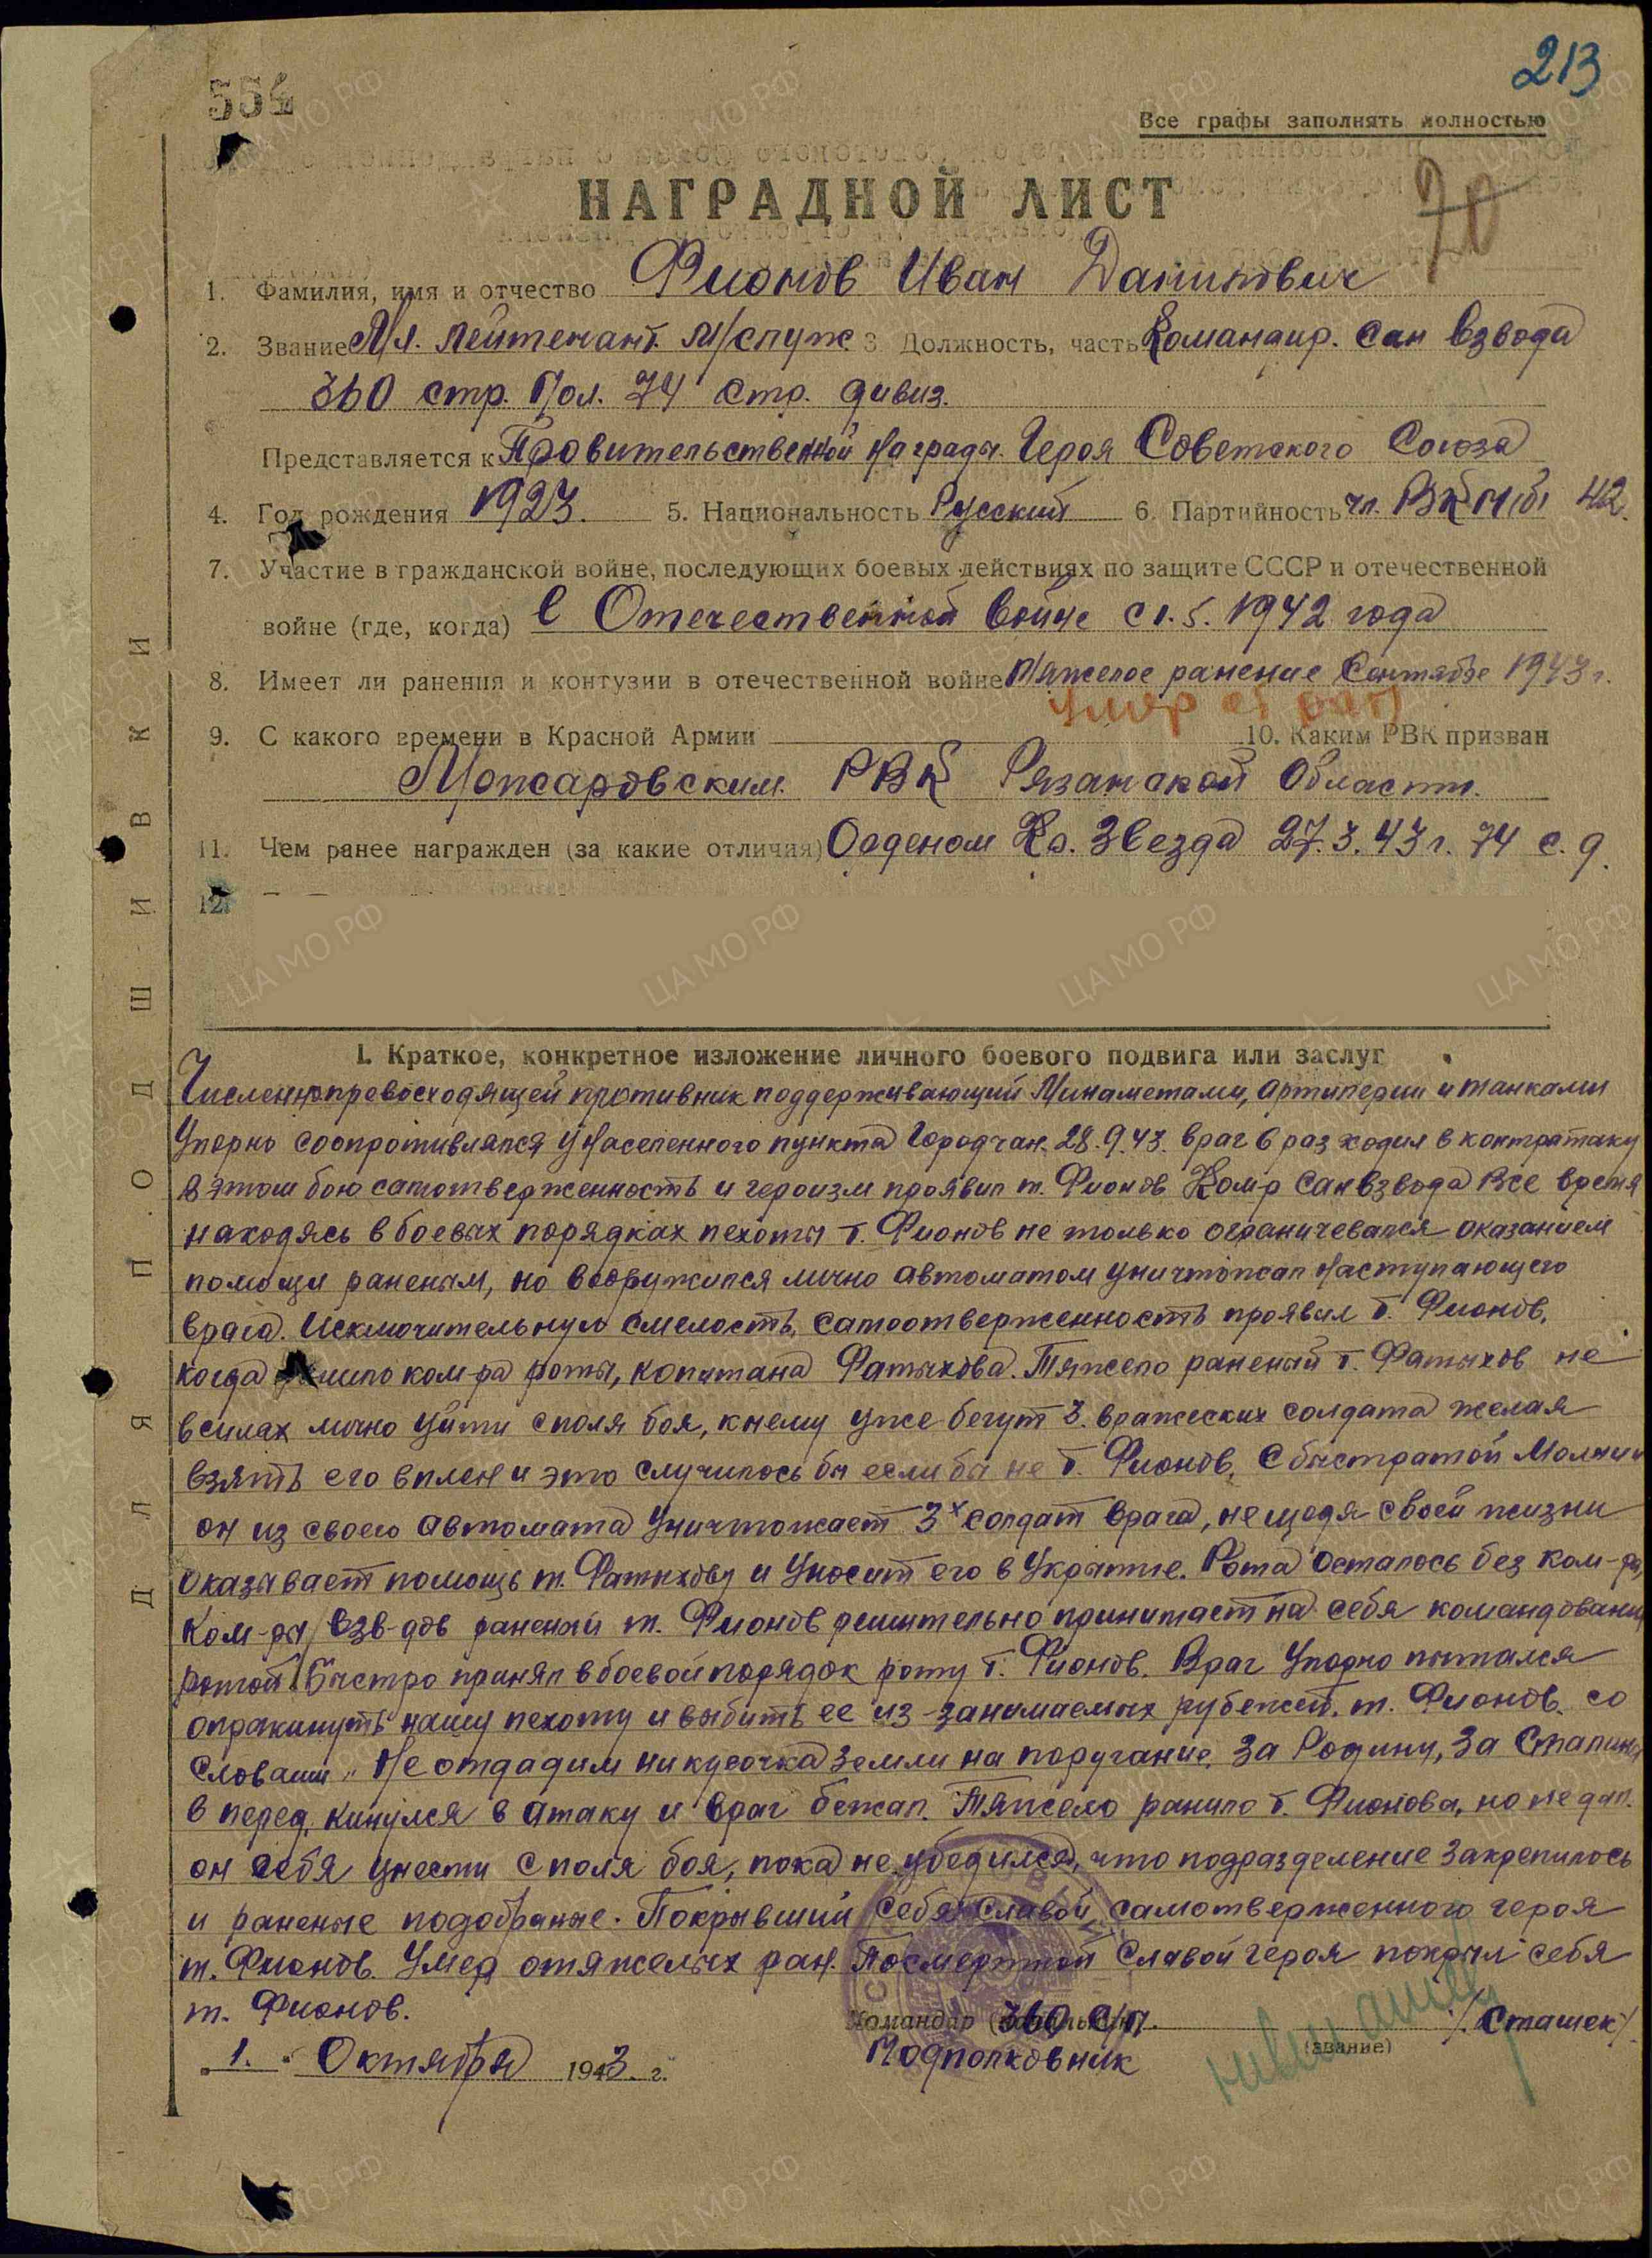 213
554
Все графы заполнять полностью
НАГРАДНОЙ ЛИСТ
70
1. Фамилия, имя и отчество Фионов Иван Данилович
2. Звание Мл. лейтенант м/служ. 3. Должность, часть Командир. сан взвода
360 стр. Пол. 74 Стр. дивиз.
Представляется к Провительственной награды. Героя Советского Союза
4. Год рождения 1923. 5. Национальность Русский 6. Партийность чл. ВКП(б) 42.
7. Участие в гражданской войне, последующих боевых действиях по защите СССР и отечественной
войне (где, когда) в Отечественной войне с 1.5. 1942 года
8. Имеет ли ранения и контузии в отечественной войне тяжелое ранение Сентябре 1943 г.
умер от ран
9. С какого времени в Красной Армии 10. Каким РВК призван
Можаровским. РВК Рязанской Области.
11. Чем ранее награжден (за какие отличия) Орденом Кр. Звезда 27.3.43 г. 74 с.д.
12.
I. Краткое, конкретное изложение личного боевого подвига или заслуг
Численнопревосходящей противник поддерживающий Минаметами, артилерии и танками
упорно соопротивлялся у населенного пункта Городчан. 28.9.43. враг 6 раз ходил в контратаку
в этом бою самотверженность и героизм проявил т. Фионов Ком-р Санвзвода Все время
находясь в боевых порядках пехоты т. Фионов не только ограничевался оказанием
помощи раненым, но вооружился лично автоматом уничтожал наступающего
врага. Исключительную смелость, самоотверженность проявил т. Фионов,
когда ком-ра роты, капитана Фатыхова. Тяжело раненый т. Фатыхов не
в силах лично уйти с поля боя, к нему уже бегут 3. вражеских солдата желая
взять его в плен и это случилось бы если бы не т. Фионов. С быстратой Молнии
он из своего автомата уничтожает 3х солдат врага, не щадя своей жизни
оказывает помощь т. Фатыхову и уносит его в укрытие. Рота осталось без ком-ра,
ком-ры взв-дов раненый т. Фионов решительно принимает на себя командование
ротой. Быстро принял в боевой порядок роту т. Фионов. Враг упорно пытался
опракинуть нашу пехоту и выбить ее из-занимаемых рубежей. т. Фионов. со
словами „Не отдадим ни кусочка земли на поругание. За Родину, за Сталина,
в перед, кинулся в атаку и враг бежал. Тяжело ранило т. Фионова, но не дал.
он себя унести с поля боя, пока не убедился, что подразделение закрепилось
и раненые подобраные. Покрывший себя славой самотверженного героя
т. Фионов. Умер от тяжелых ран. Посмертной Славой героя покрыл себя
т. Фионов.
Командир (начальник) 360 с/п. /Сташек/
Подполковник (звание)
„1.“ Октября 1943 г.
ДЛЯ ПОДШИВКИ
ЦА МО РФ